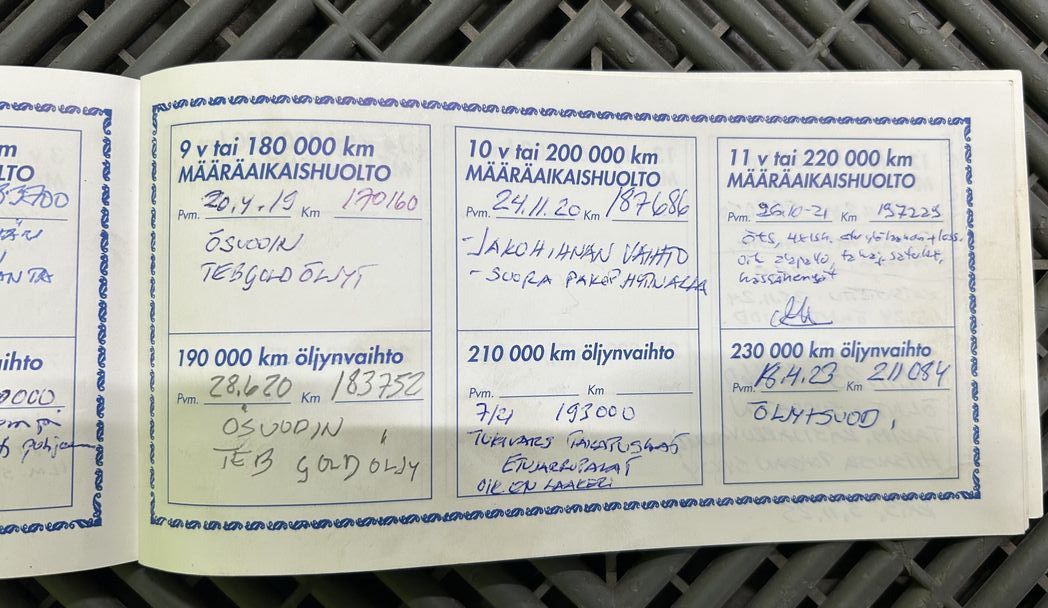 m
LTO
ANTA
9 v tai 180 000 km
MÄÄRÄAIKAISHUOLTO
Pvm. 20.4.19 Km 170160
ÖSUODIN
TEBGOLD ÖLJYT
10 v tai 200 000 km
MÄÄRÄAIKAISHUOLTO
Pvm. 24.11.20 Km 187686
-JAKOHIHNAN VAIHTO
- SUORA
11 v tai 220 000 km
MÄÄRÄAIKAISHUOLTO
Pvm. 26.10-21 Km 197229
öts,
oik
ihto
0000
190 000 km öljynvaihto
Pvm. 28.6.20 Km 183752
ÖSUODIN
TEB GOLD ÖLJY
210 000 km öljynvaihto
Pvm. Km
7/21 193000
TUKIVARS TAKATUSKAT
ETUJARRUPALAT
OIK EN LAAKERI
230 000 km öljynvaihto
Pvm. 18.4.23 Km 211084
ÖLJYTSUOD,